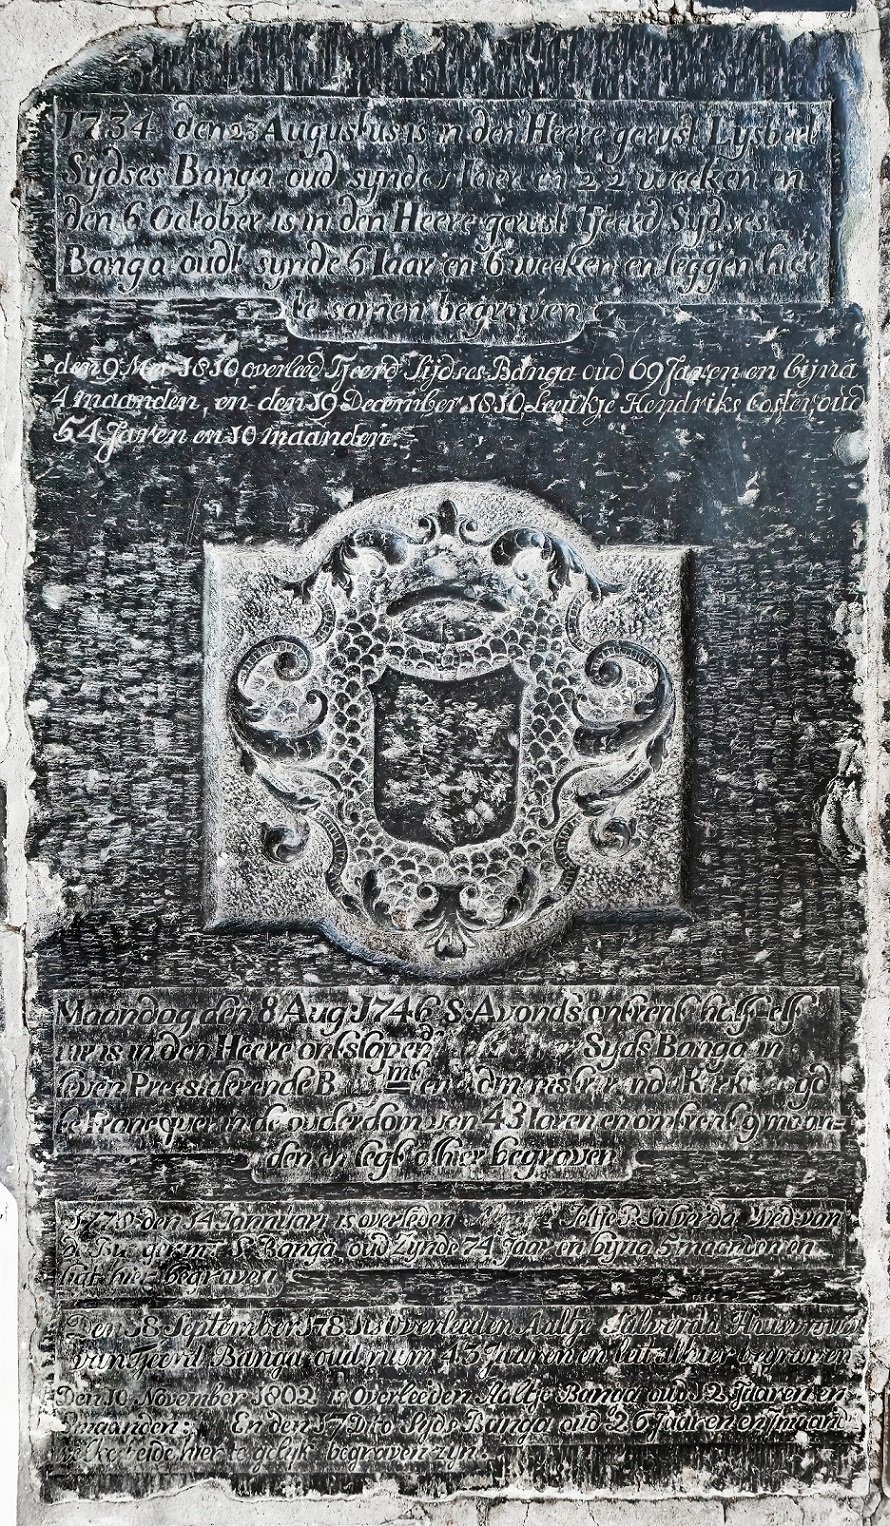 1734 den 23 Augustus is in den Heere gerust Lysbeet
Sydses Banga oud synde 1 Iaer en 22 weeken en
den 6 October is in den Heere gerust Tjeerd Sydses
Banga oudt synde 6 Iaar en 6 weeken en leggen hier
te samen begraven
den 9 Mei 1810, overleed Tjeerd Sijdses Banga oud 69 Jaren en bijna
4 maanden, en den 19 December 1810 Leeukje Hendriks Coster, oud
54 Jaren en 10 maanden.
Maandag den 8 Aug 1746 S. Avonds ontrent half elf
uur is in den Heere ontslapen Syds Banga in
leven Preesiderende en Kerk
te Franequer in de ouderdom van 43 Iaren en omtrent 9 maan=
den en legt alhier begraven
den 14 Jannuari is overleden Jeltje P. Salverda Wed: van
S. Banga, oud Zijnde 74 Jaar en bijna 5 maanden en
hier begraven
Den 18 September 1781 is Overleeden Aaltje Salverda Huisvrouw
van Tjeerd Banga oud ruim 43 Jaaren en lait al hier begraven
Den 10 November 1802 is Overleeden Aaltje Banga oud 12 Jaaren en
maanden; En den 17 Dito Sijds Banga oud 26 Jaar en maand
welke beide hier te gelijk begraven zijn.